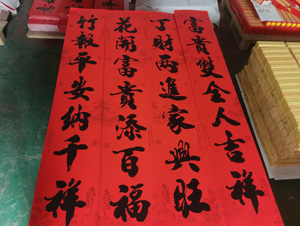 富貴雙全人吉祥
丁財兩進家興旺
花開富貴添百福
竹報平安納千祥